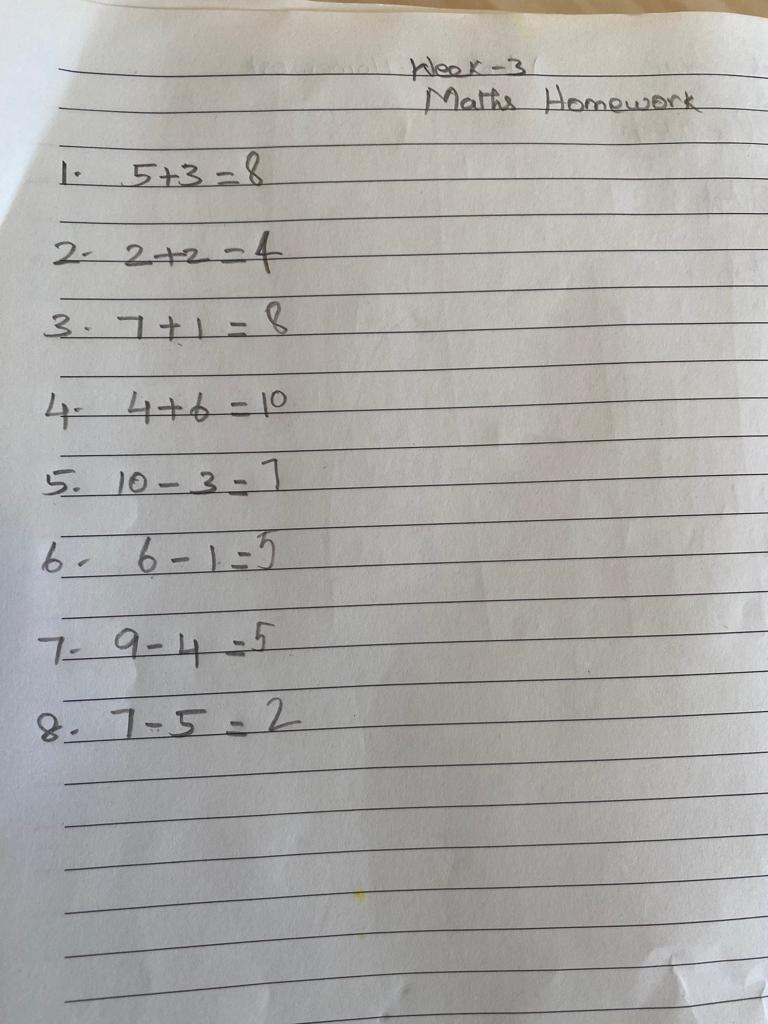 Week-3
Maths Homework
1. 5+3=8
2. 2+2=4
3. 7+1=8
4. 4+6=10
5. 10-3=7
6. 6-1=5
7. 9-4=5
8. 7-5=2